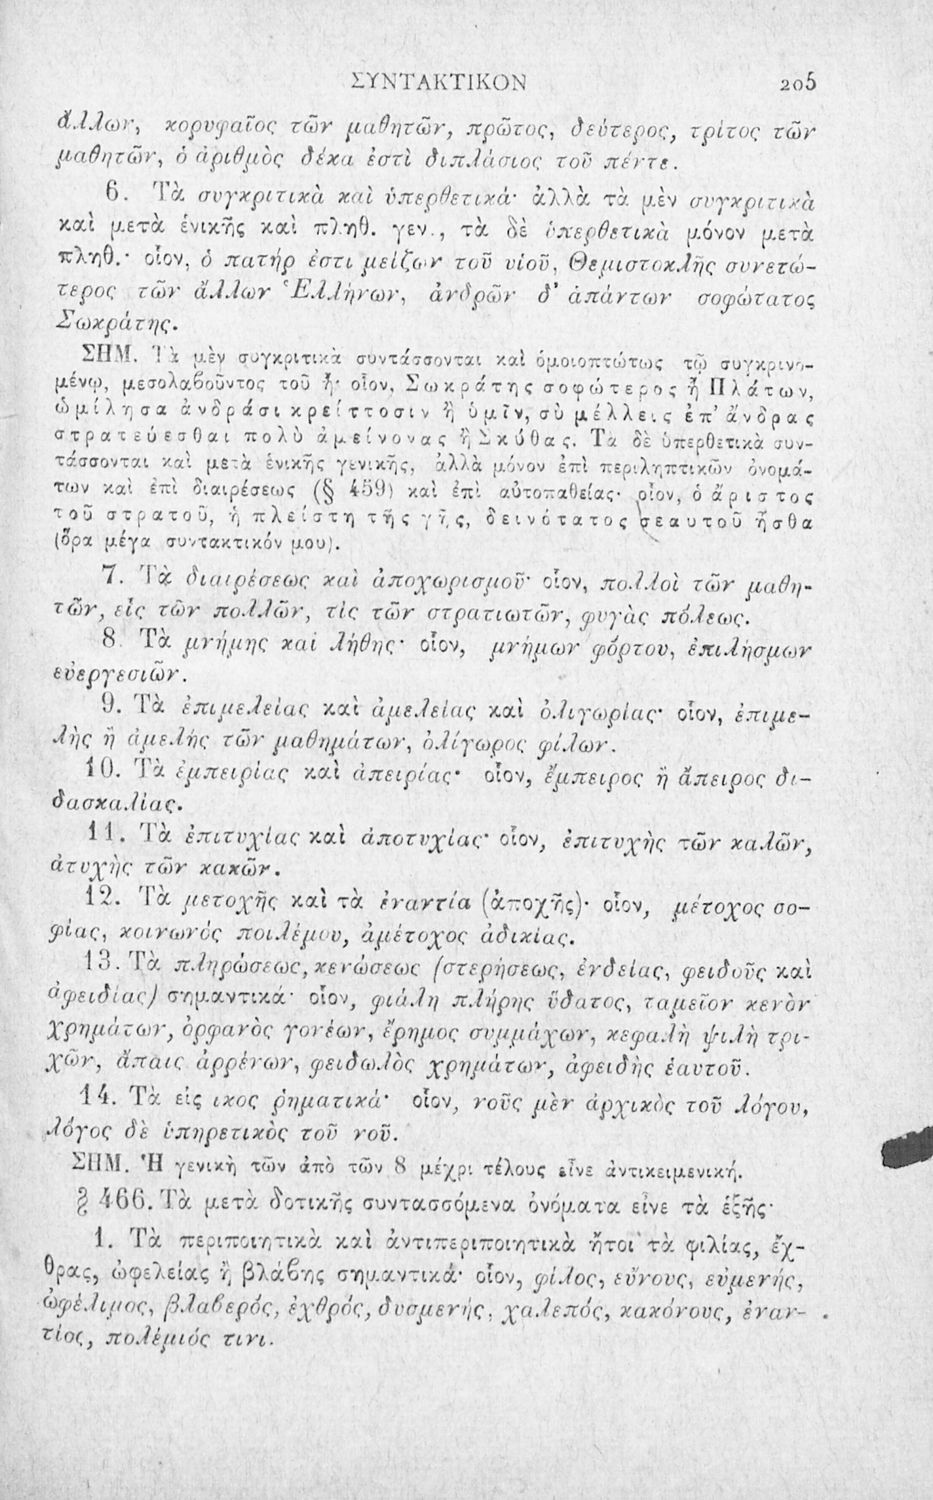 ΣΥΝΤΑΚΤΙΚΟΝ 205
ἄλλων, κορυφαῖος τῶν μαθητῶν, πρῶτος, δεύτερος, τρίτος τῶν
μαθητῶν, ὁ ἀριθμὸς δέκα ἐστὶ διπλάσιος τοῦ πέντε.
6. Τὰ συγκριτικὰ καὶ ὑπερθετικά· ἀλλὰ τὰ μὲν συγκριτικὰ
καὶ μετὰ ἑνικῆς καὶ πληθ. γεν., τὰ δὲ ὑπερθετικὰ μόνον μετὰ
πληθ.· οἷον, ὁ πατήρ ἐστι μείζων τοῦ υἱοῦ, Θεμιστοκλῆς συνετώ-
τερος τῶν ἄλλων Ἑλλήνων, ἀνδρῶν δ' ἁπάντων σοφώτατος
Σωκράτης.
ΣΗΜ. Τὰ μὲν συγκριτικὰ συντάσσονται καὶ ὁμοιοπτώτως τῷ συγκρινο-
μένῳ, μεσολαβοῦντος τοῦ ἤ· οἷον, Σωκράτης σοφώτερος ἢ Πλάτων,
ὡμίλησα ἀνδράσι κρείττοσιν ἢ ὑμῖν, σὺ μέλλεις ἐπ' ἄνδρας
στρατεύεσθαι πολὺ ἀμείνονας ἢ Σκύθας. Τὰ δὲ ὑπερθετικὰ συν-
τάσσονται καὶ μετὰ ἑνικῆς γενικῆς, ἀλλὰ μόνον ἐπὶ περιληπτικῶν ὀνομά-
των καὶ ἐπὶ διαιρέσεως (§ 459) καὶ ἐπὶ αὐτοπαθείας· οἷον, ὁ ἄριστος
τοῦ στρατοῦ, ἡ πλείστη τῆς γῆς, δεινότατος σεαυτοῦ ἦσθα
(ὅρα μέγα συντακτικόν μου).
7. Τὰ διαιρέσεως καὶ ἀποχωρισμοῦ· οἷον, πολλοὶ τῶν μαθη-
τῶν, εἷς τῶν πολλῶν, τὶς τῶν στρατιωτῶν, φυγὰς πόλεως.
8. Τὰ μνήμης καὶ λήθης· οἷον, μνήμων φόρτου, ἐπιλήσμων
εὐεργεσιῶν.
9. Τὰ ἐπιμελείας καὶ ἀμελείας καὶ ὀλιγωρίας· οἷον, ἐπιμε-
λὴς ἢ ἀμελὴς τῶν μαθημάτων, ὀλίγωρος φίλων.
10. Τὰ ἐμπειρίας καὶ ἀπειρίας· οἷον, ἔμπειρος ἢ ἄπειρος δι-
δασκαλίας.
11. Τὰ ἐπιτυχίας καὶ ἀποτυχίας· οἷον, ἐπιτυχὴς τῶν καλῶν,
ἀτυχὴς τῶν κακῶν.
12. Τὰ μετοχῆς καὶ τὰ ἐναντία (ἀποχῆς)· οἷον, μέτοχος σο-
φίας, κοινωνὸς ποιλέμου, ἀμέτοχος ἀδικίας.
13. Τὰ πληρώσεως, κενώσεως (στερήσεως, ἐνδείας, φειδοῦς καὶ
ἀφειδίας) σημαντικά· οἷον, φιάλη πλήρης ὕδατος, ταμεῖον κενὸν
χρημάτων, ὀρφανὸς γονέων, ἔρημος συμμάχων, κεφαλὴ ψιλὴ τρι-
χῶν, ἄπαις ἀρρένων, φειδωλὸς χρημάτων, ἀφειδὴς ἑαυτοῦ.
14. Τὰ εἰς ικος ῥηματικά· οἷον, νοῦς μὲν ἀρχικὸς τοῦ λόγου,
λόγος δὲ ὑπηρετικὸς τοῦ νοῦ.
ΣΗΜ. Ἡ γενικὴ τῶν ἀπὸ τῶν 8 μέχρι τέλους εἶνε ἀντικειμενική.
§ 466. Τὰ μετὰ δοτικῆς συντασσόμενα ὀνόματα εἶνε τὰ ἑξῆς·
1. Τὰ περιποιητικὰ καὶ ἀντιπεριποιητικὰ ἤτοι τὰ φιλίας, ἔχ-
θρας, ὠφελείας ἢ βλάβης σημαντικά· οἷον, φίλος, εὔνους, εὐμενής,
ὠφέλιμος, βλαβερός, ἐχθρός, δυσμενής, χαλεπός, κακόνους, ἐναν-
τίος, πολέμιός τινι.